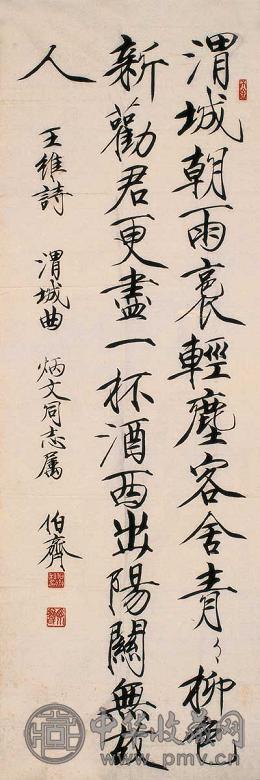 渭城朝雨裛輕塵客舍青々柳色
新勸君更盡一杯酒西出陽關無故
人
王維詩 渭城曲 炳文同志屬 伯齊
中华收藏网
www.pmv.cn